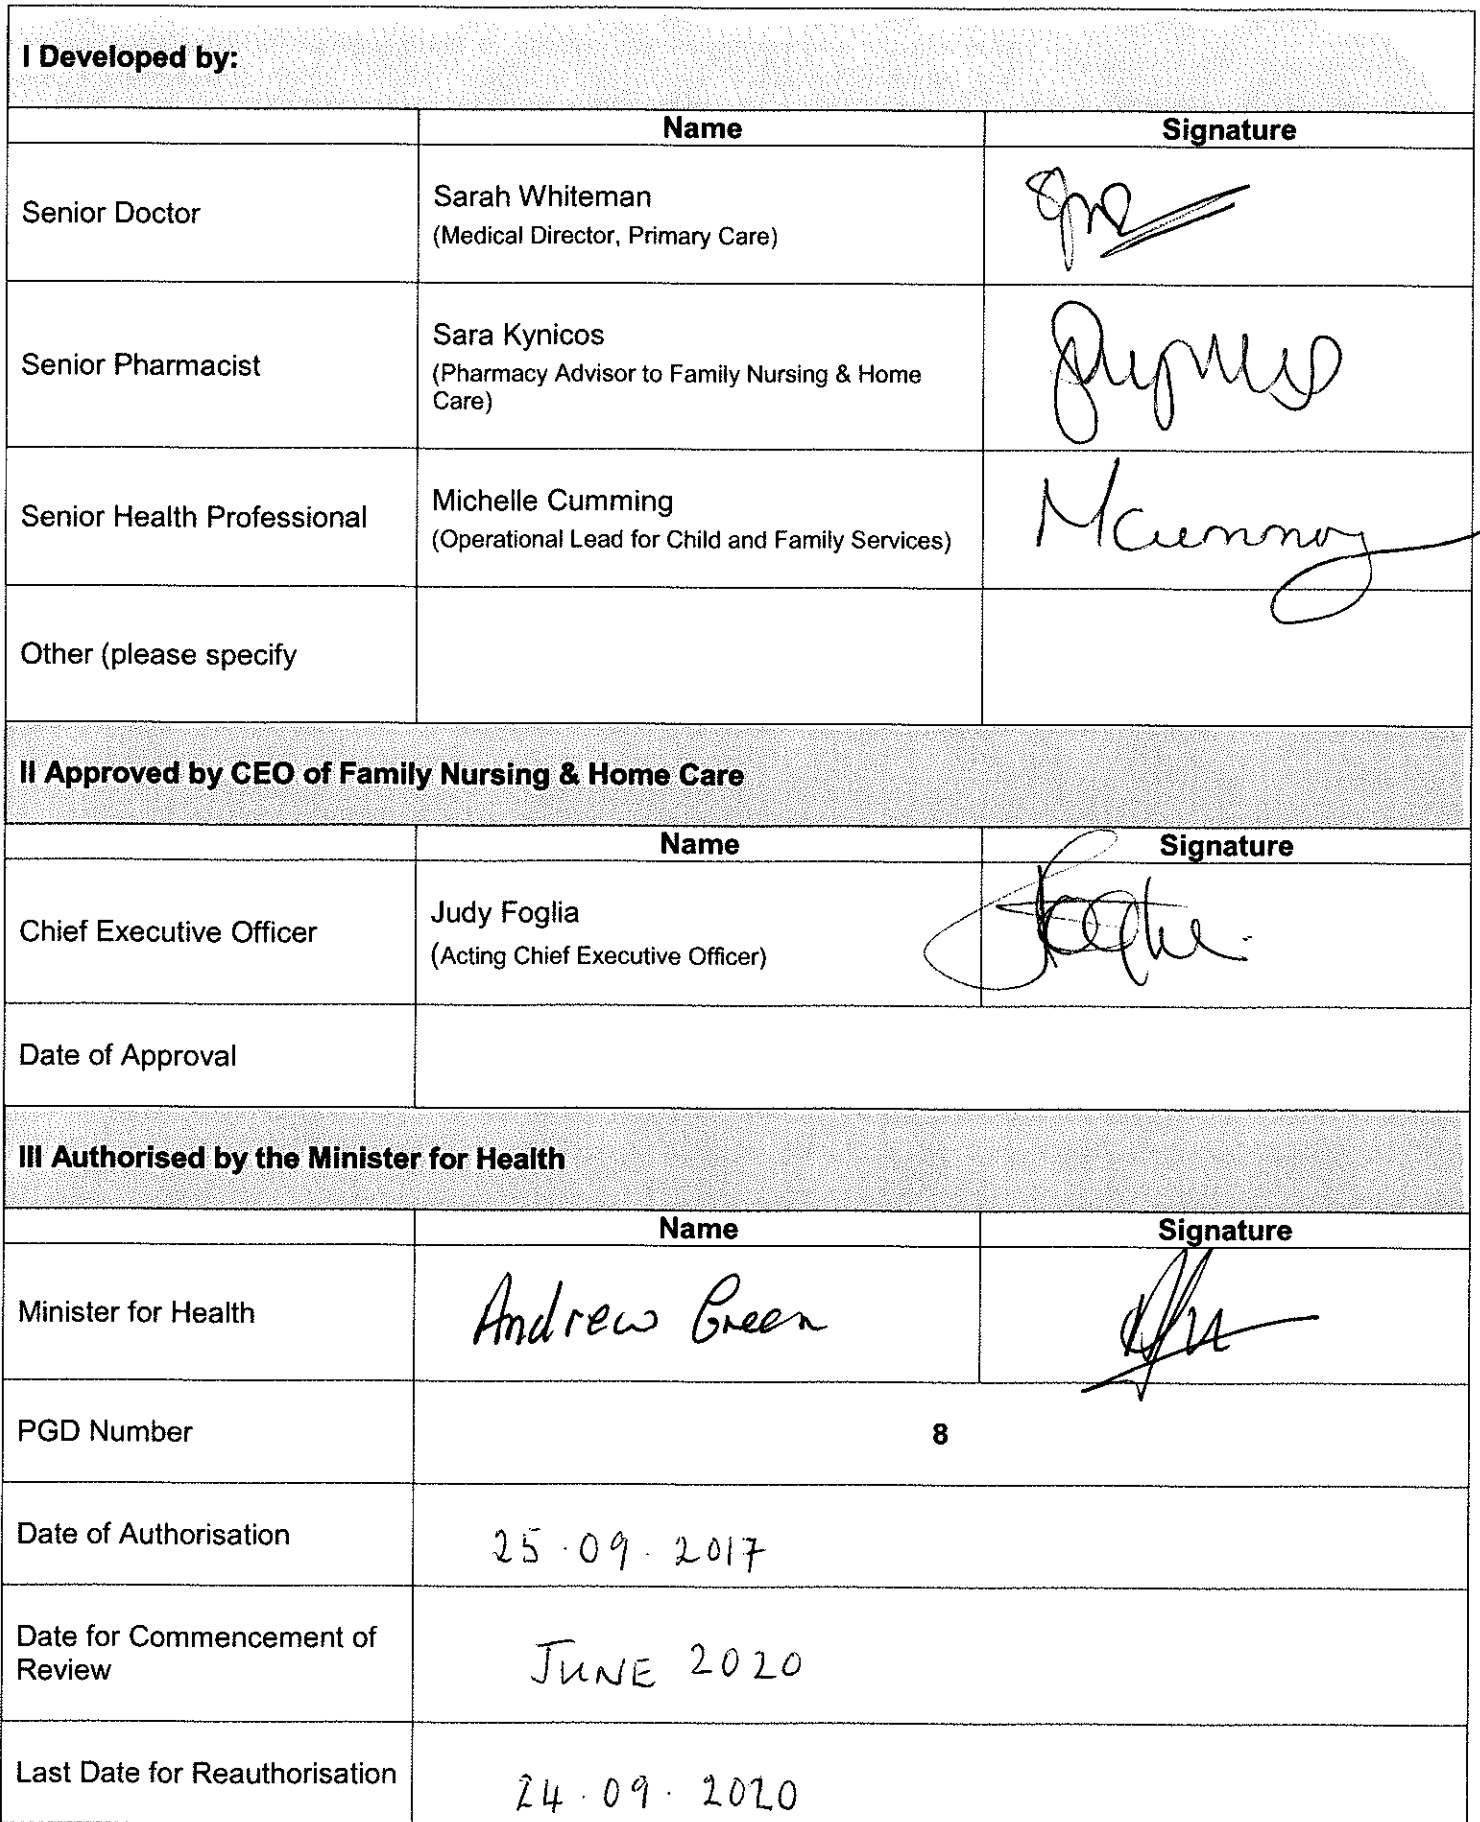 I Developed by:
Name Signature
Senior Doctor
Sarah Whiteman
(Medical Director, Primary Care)
Senior Pharmacist
Sara Kynicos
(Pharmacy Advisor to Family Nursing & Home
Care)
Senior Health Professional
Michelle Cumming
(Operational Lead for Child and Family Services)
Other (please specify
II Approved by CEO of Family Nursing & Home Care
Name Signature
Chief Executive Officer
Judy Foglia
(Acting Chief Executive Officer)
Date of Approval
III Authorised by the Minister for Health
Name Signature
Minister for Health Andrew Green
PGD Number 8
Date of Authorisation 25.09.2017
Date for Commencement of
Review
JUNE 2020
Last Date for Reauthorisation 24.09.2020